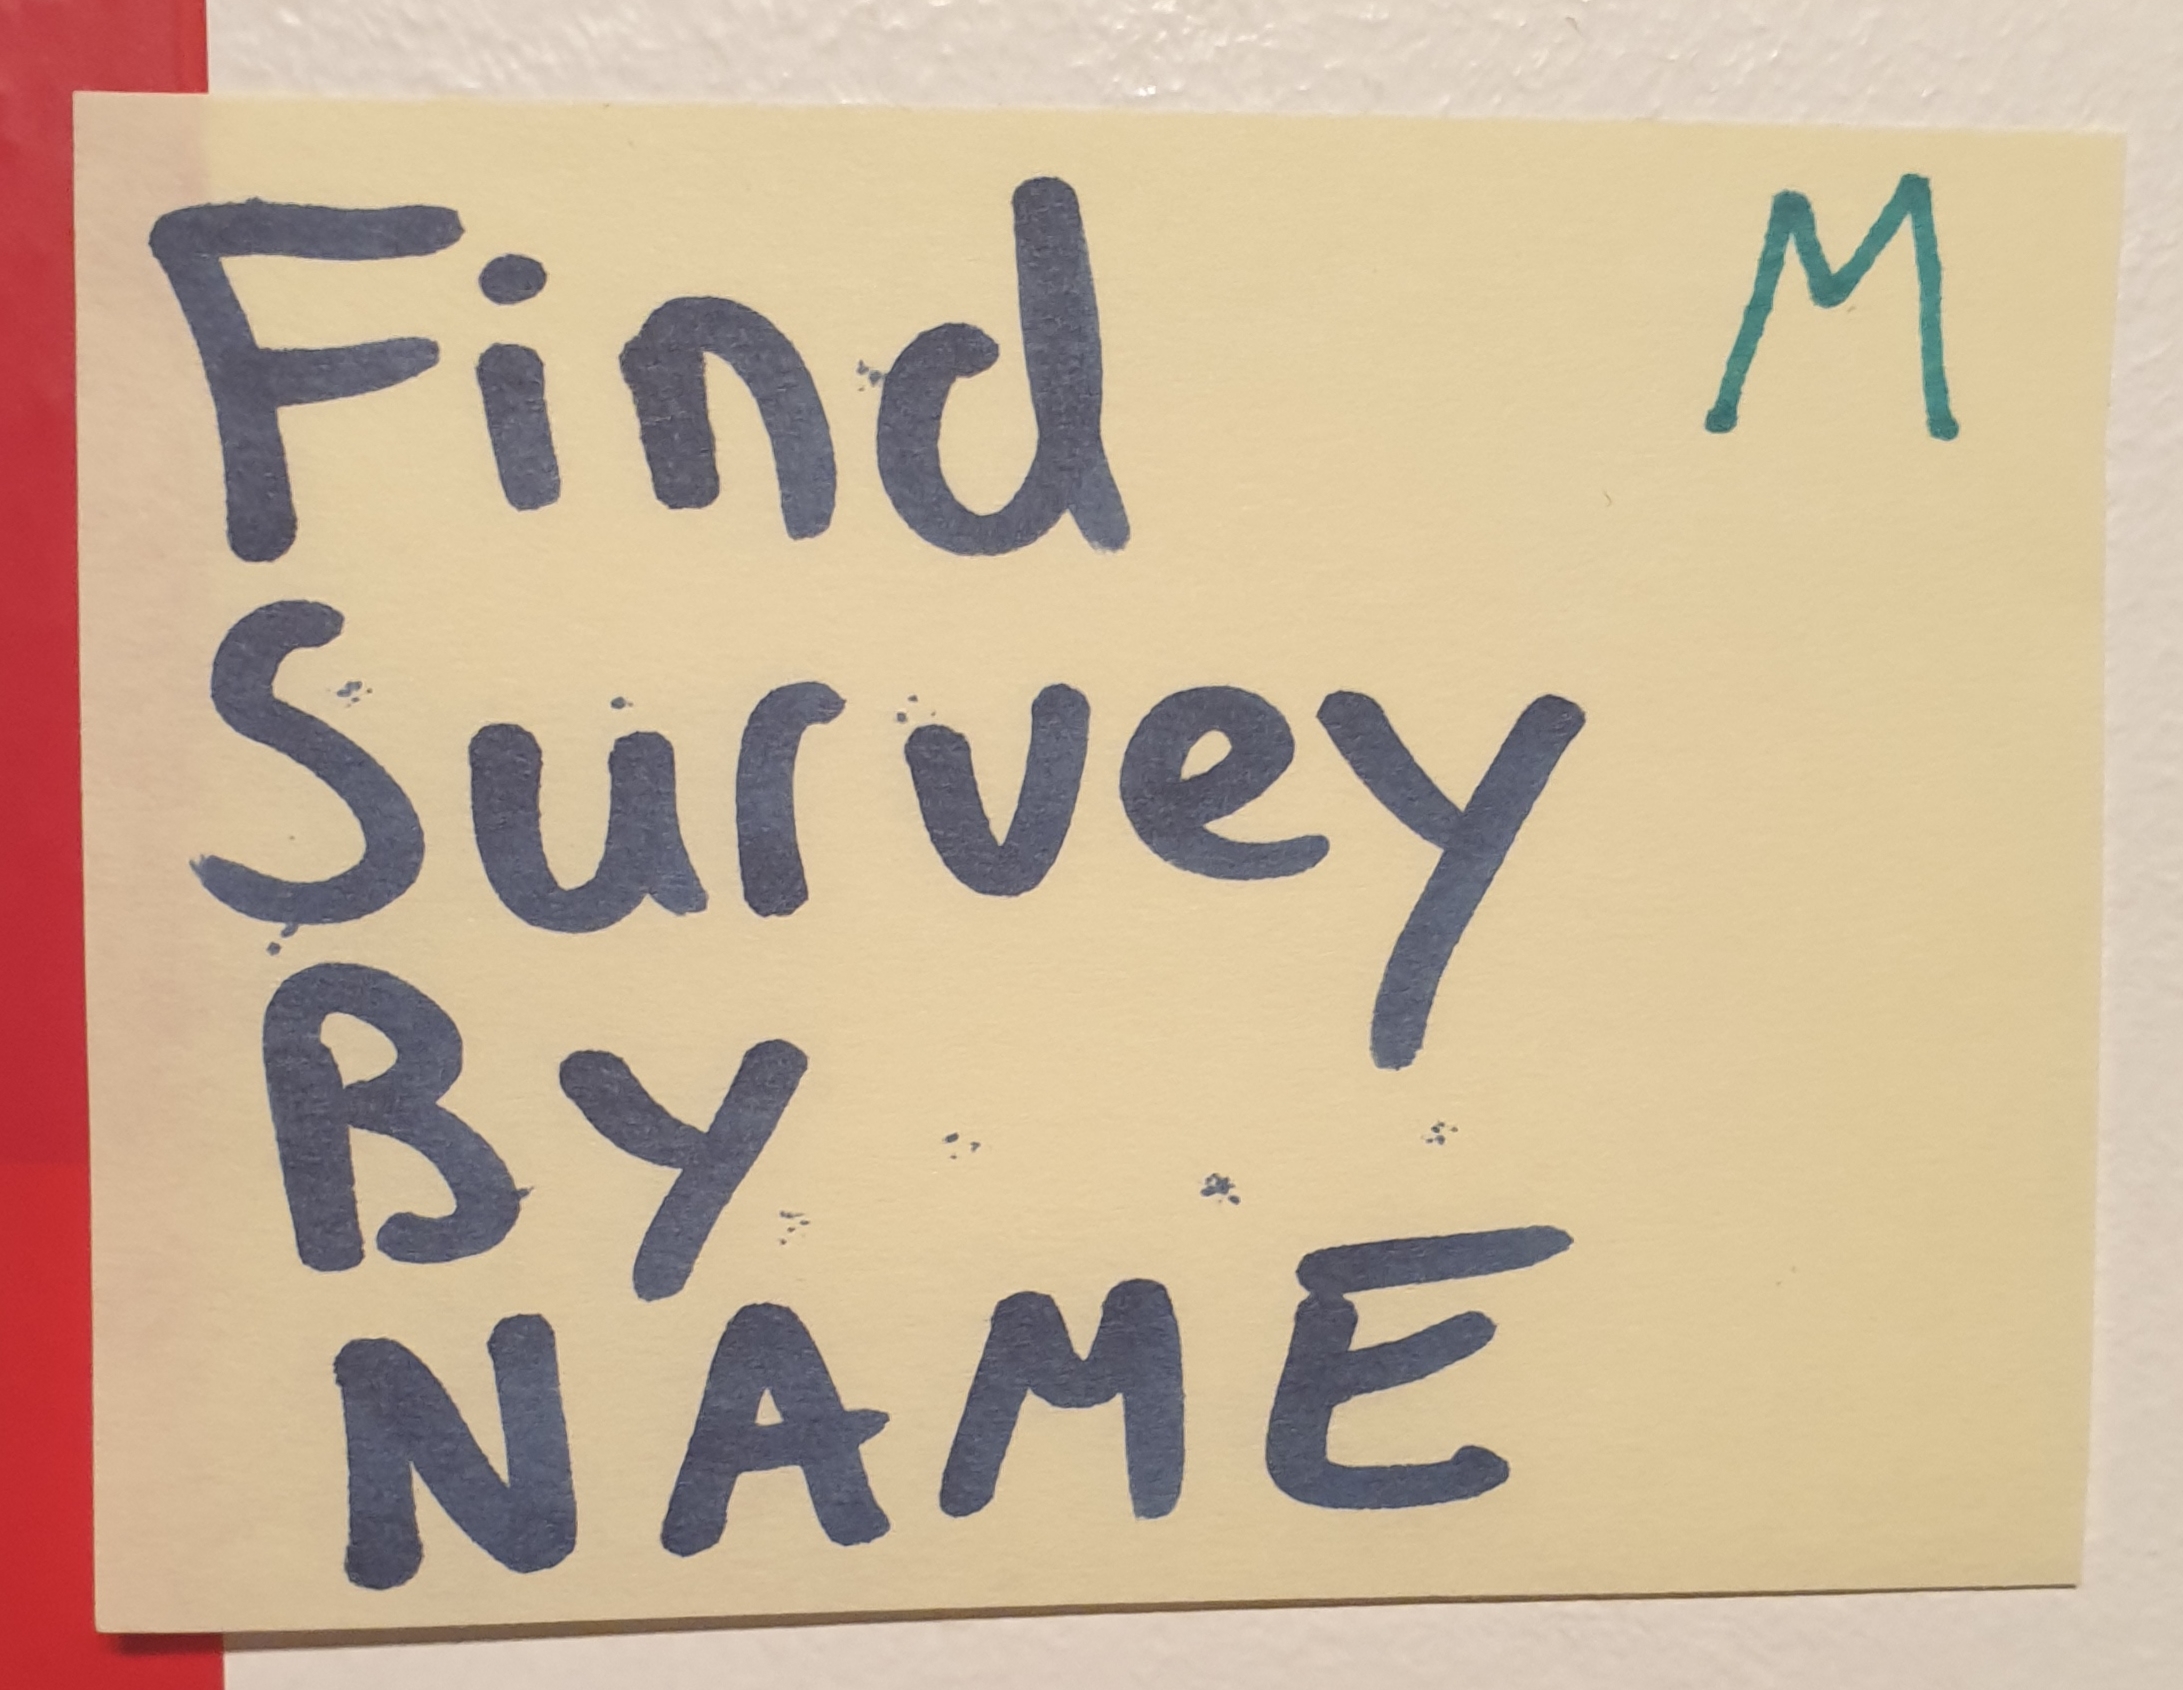 Find
M
Survey
By
NAME